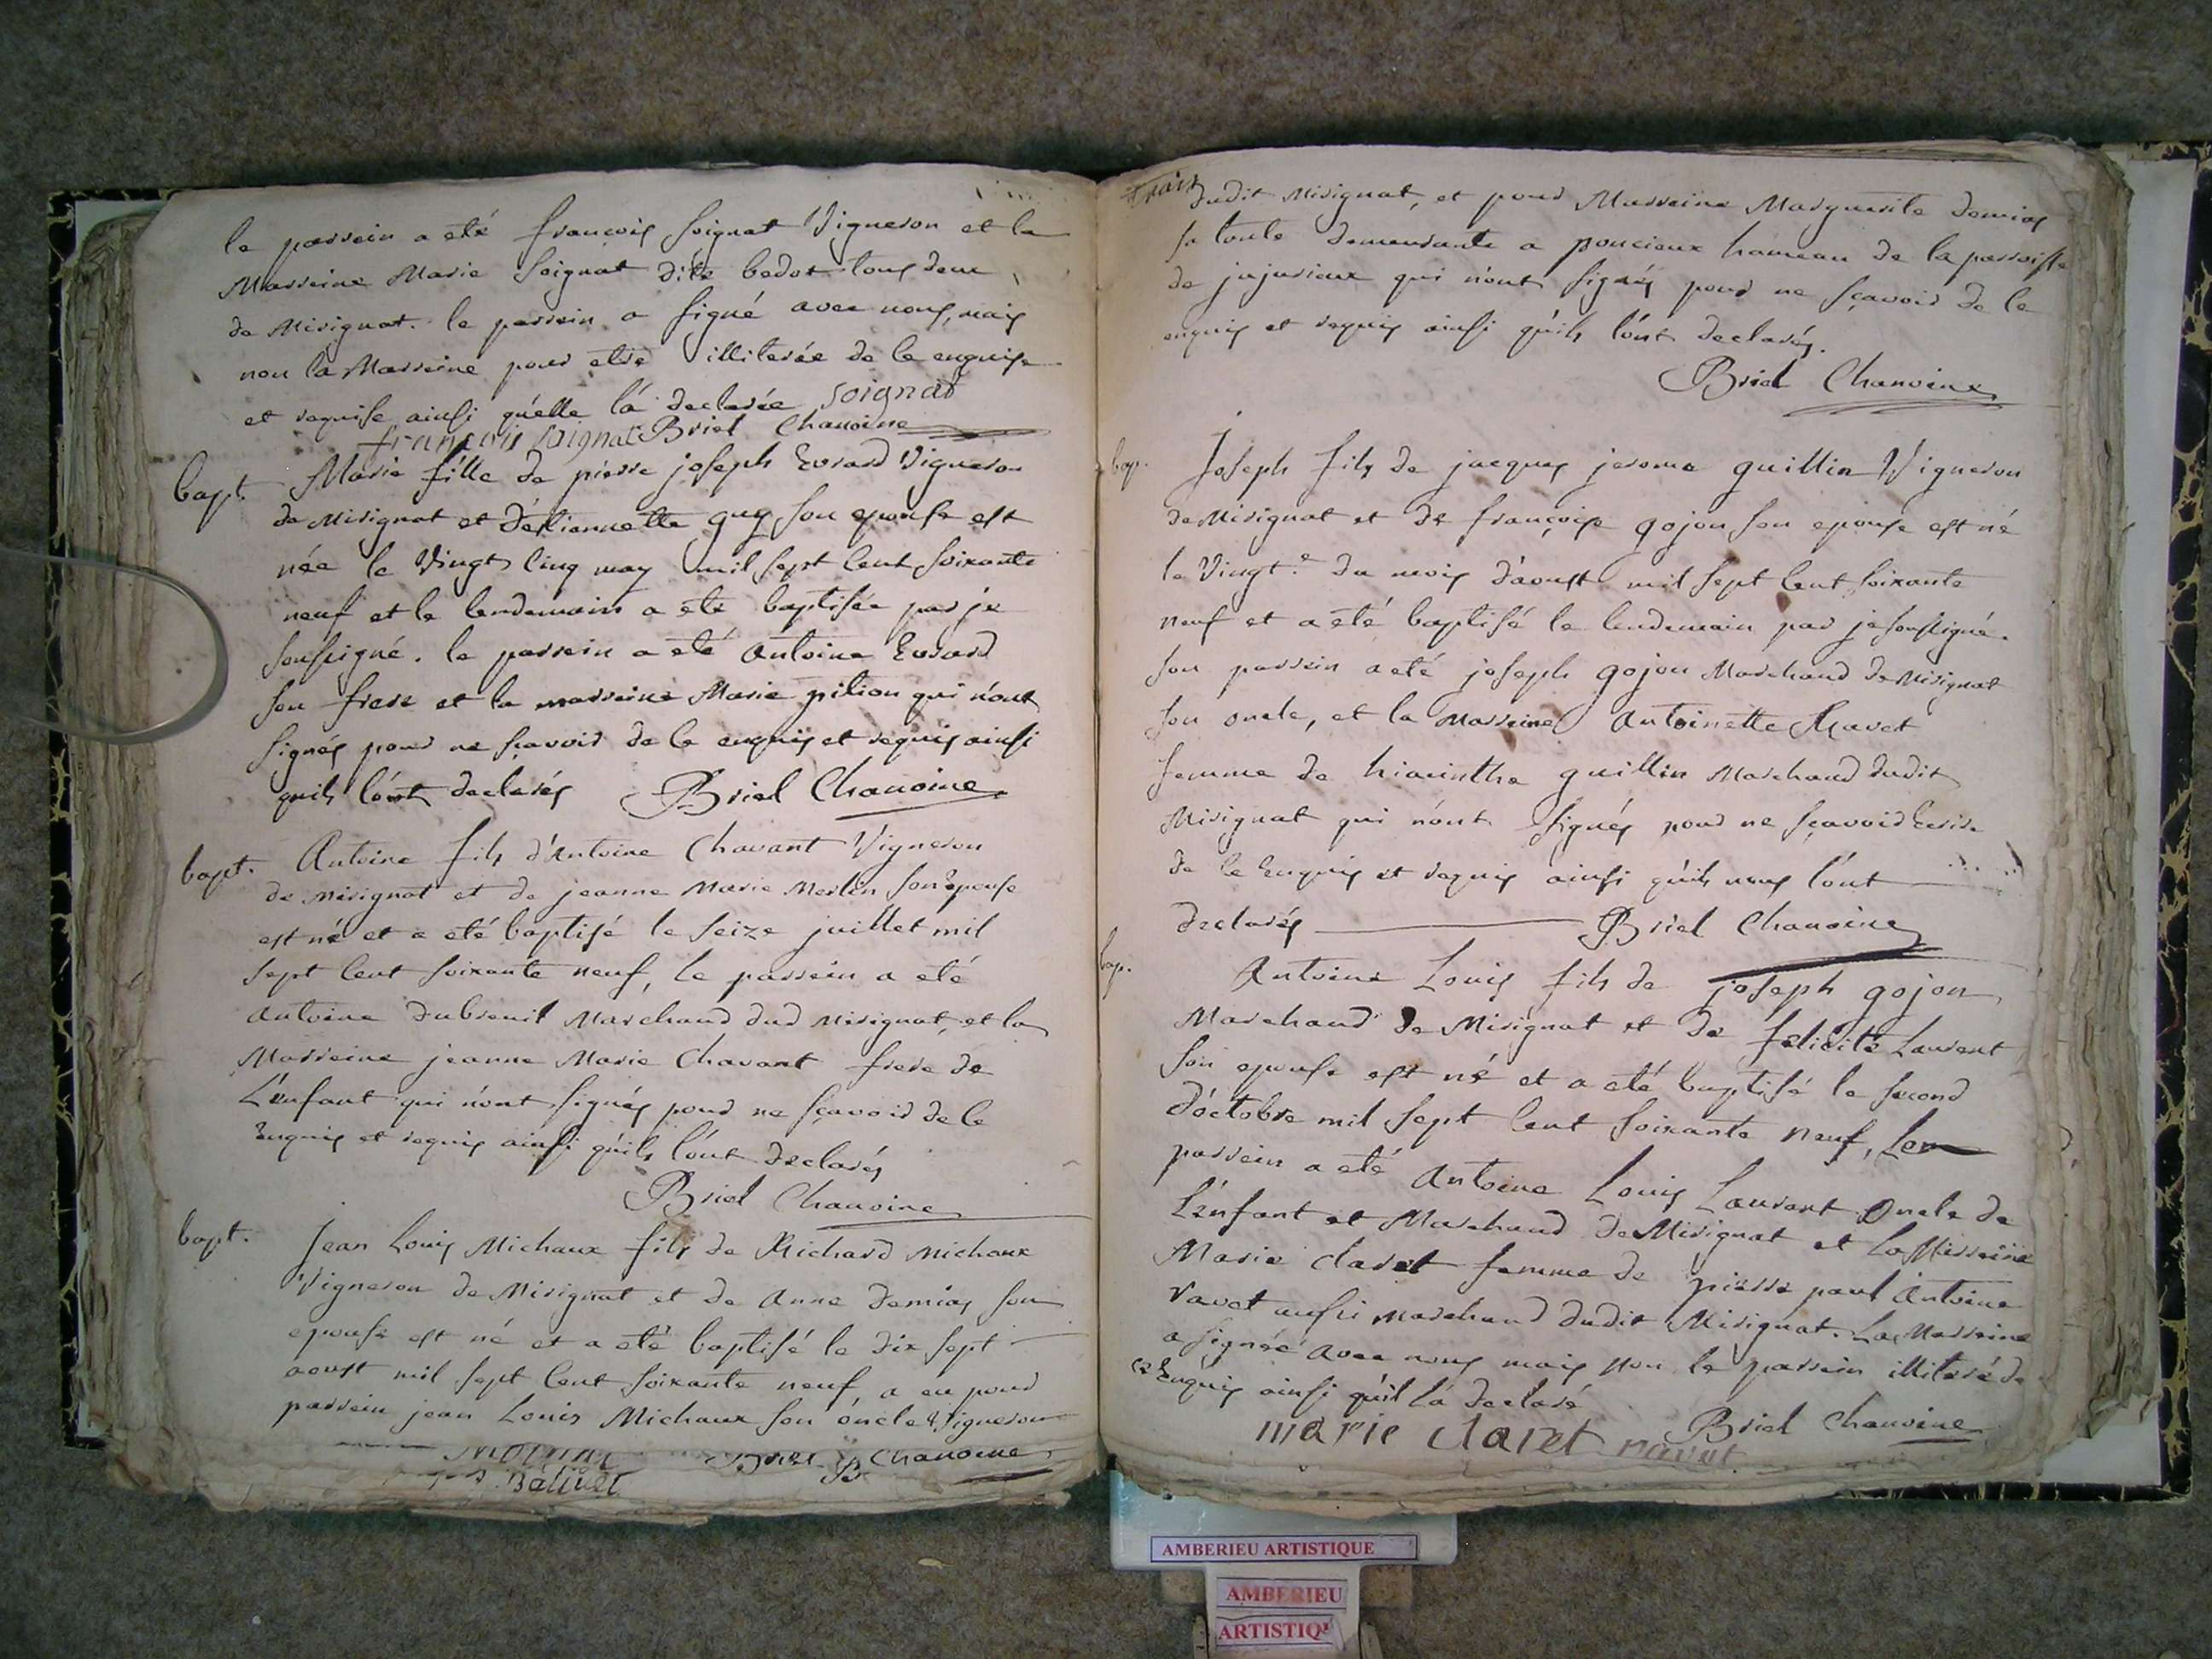 le parrein a eté françois soignat Vigneron et la
Marreine Marie soignat dite bedot tous deux
de Merignat. le parrein a signé avec nous, mais
non la Marreine pour etre illiterée de ce enquise
et requise ainsi qu'elle l'a declarée soignat
françois soignat Briel Chanoine
bapt. Marie fille de pierre joseph Evrard Vigneron
de Merignat et d'étiennette guy son epouse est
née le Vingt cinq may mil sept cent soixante
neuf et le lendemain a eté baptisée par je
soussigné. le parrein a eté Antoine Evrard
son frere et la marreine Marie pition qui n'ont
signés pour ne sçavoir de ce enquis et requis ainsi
quils l'ont declarés Briel Chanoine
bapt. Antoine fils d'Antoine Chavant Vigneron
de Merignat et de jeanne Marie Merlin son Epouse
est né et a eté baptisé le seize juillet mil
sept cent soixante neuf, le parrein a eté
Antoine dubreuil Marchand dud Merignat, et la
Marreine jeanne Marie Chavant frere de
L'enfant qui n'ont signés pour ne sçavoir de ce
Enquis et requis ainsi qu'ils l'ont declarés
Briel Chanoine
bapt. Jean Louis Michaux fils de Richard Michaux
Vigneron de Merignat et de Anne demias son
epouse est né et a eté baptisé le dix sept
aoust mil sept cent soixante neuf a eu pour
parrein jean Louis Michaux son oncle Vigneron
Chanoine
dudit Merignat, et pour Marreine Marguerite demias
sa tante demeurante a poncieux hameau de la parroisse
de jujurieux qui n'ont signés pour ne sçavoir de ce
enquis et requis ainsi qu'ils l'ont declarés.
Briel Chanoine
bap. Joseph fils de jacques jerome guillin Vigneron
de Merignat et de françoise gojon son epouse est né
le Vingt.e du mois d'aoust mil sept cent soixante
neuf et a eté baptisé le lendemain par je soussigné.
son parrein a eté joseph gojon Marchand de Merignat
son oncle, et la Marreine Antoinette Ravet
femme de hiacinthe guillin Marchand dudit
Merignat qui n'ont signés pour ne sçavoir Ecrire
de ce Enquis et requis ainsi qu'ils nous l'ont
declarés Briel Chanoine
bap. Antoine Louis fils de joseph gojon
Marchand de Merignat et de felicité Laurent
son epouse est né et a eté baptisé le second
d'octobre mil sept cent soixante neuf, Son
parrein a eté Antoine Louis Laurent Oncle de
L'enfant et Marchand de Merignat et La Marreine
Marie claret femme de pierre paul Antoine
ravet aussi marchand dudit Merignat. La Marreine
a signée avec nous mais non le parrein illiteré de
ce Enquis ainsi qu'il l'a declaré
marie claret ravet Briel Chanoine
AMBERIEU ARTISTIQUE
AMBERIEU
ARTISTIQ